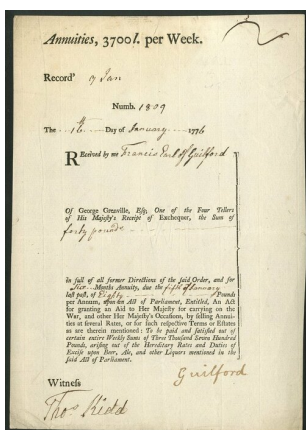 Annuities, 3700 l. per Week.
Record^d 9 Jan
Numb. 1809
The 16th Day of January 1776
Received by me Francis Earl of Guilford
Of George Grenville, Esq; One of the Four Tellers
of His Majesty's Receipt of Exchequer, the Sum of
forty pounds
In full of all former Directions of the said Order, and for
Six Months Annuity, due the fifth of January
last past, of Eighty Pounds
per Annum, upon an Act of Parliament, Entitled, An Act
for granting an Aid to Her Majesty for carrying on the
War, and other Her Majesty's Occasions, by selling Annui-
ties at several Rates, or for such respective Terms or Estates
as are therein mentioned: To be paid and satisfied out of
certain Weekly Sums of Three Thousand Seven Hundred
Pounds, arising out of the Hereditary Rates and Duties of
Excise upon Beer, Ale, and other Liquors mentioned in the
said Act of Parliament.
Guilford
Witness
Tho^s Kidd